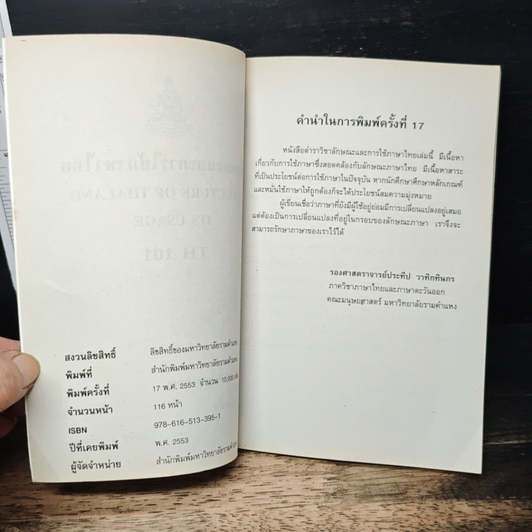 สงวนลิขสิทธิ์ ลิขสิทธิ์ของมหาวิทยาลัยรามคำแหง
พิมพ์ที่ สำนักพิมพ์มหาวิทยาลัยรามคำแหง
พิมพ์ครั้งที่ 17 พ.ศ. 2553 จำนวน 10,000
จำนวนหน้า 116 หน้า
ISBN 978-616-513-395-1
ปีที่เคยพิมพ์ พ.ศ. 2553
ผู้จัดจำหน่าย สำนักพิมพ์มหาวิทยาลัยรามคำแหง
คำนำในการพิมพ์ครั้งที่ 17
หนังสือตำราวิชาลักษณะและการใช้ภาษาไทยเล่มนี้ มีเนื้อหา
เกี่ยวกับการใช้ภาษาซึ่งสอดคล้องกับลักษณะภาษาไทย มีเนื้อหาสาระ
ที่เป็นประโยชน์ต่อการใช้ภาษาในปัจจุบัน หากนักศึกษาศึกษาหลักเกณฑ์
และหมั่นใช้ภาษาให้ถูกต้องก็จะได้ประโยชน์สมความมุ่งหมาย
ผู้เขียนเชื่อว่าภาษาที่ยังมีผู้ใช้อยู่ย่อมมีการเปลี่ยนแปลงอยู่เสมอ
แต่ต้องเป็นการเปลี่ยนแปลงที่อยู่ในกรอบของลักษณะภาษา เราจึงจะ
สามารถรักษาภาษาของเราไว้ได้
รองศาสตราจารย์ประทีป วาทิกทินกร
ภาควิชาภาษาไทยและภาษาตะวันออก
คณะมนุษยศาสตร์ มหาวิทยาลัยรามคำแหง